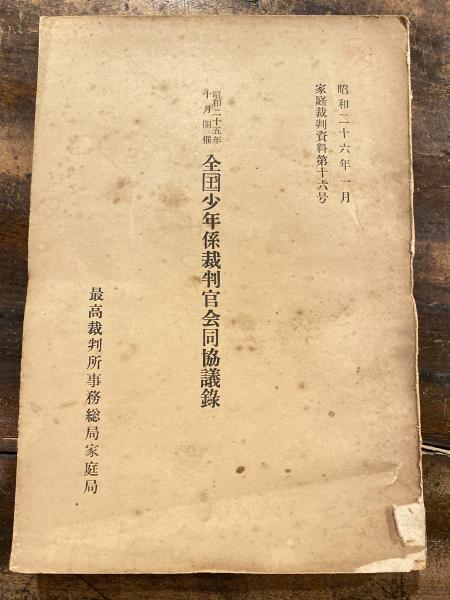 昭和二十六年一月
家庭裁判資料第十六号
昭和二十五年
十月開催
全国少年係裁判官会同協議録
最高裁判所事務総局家庭局